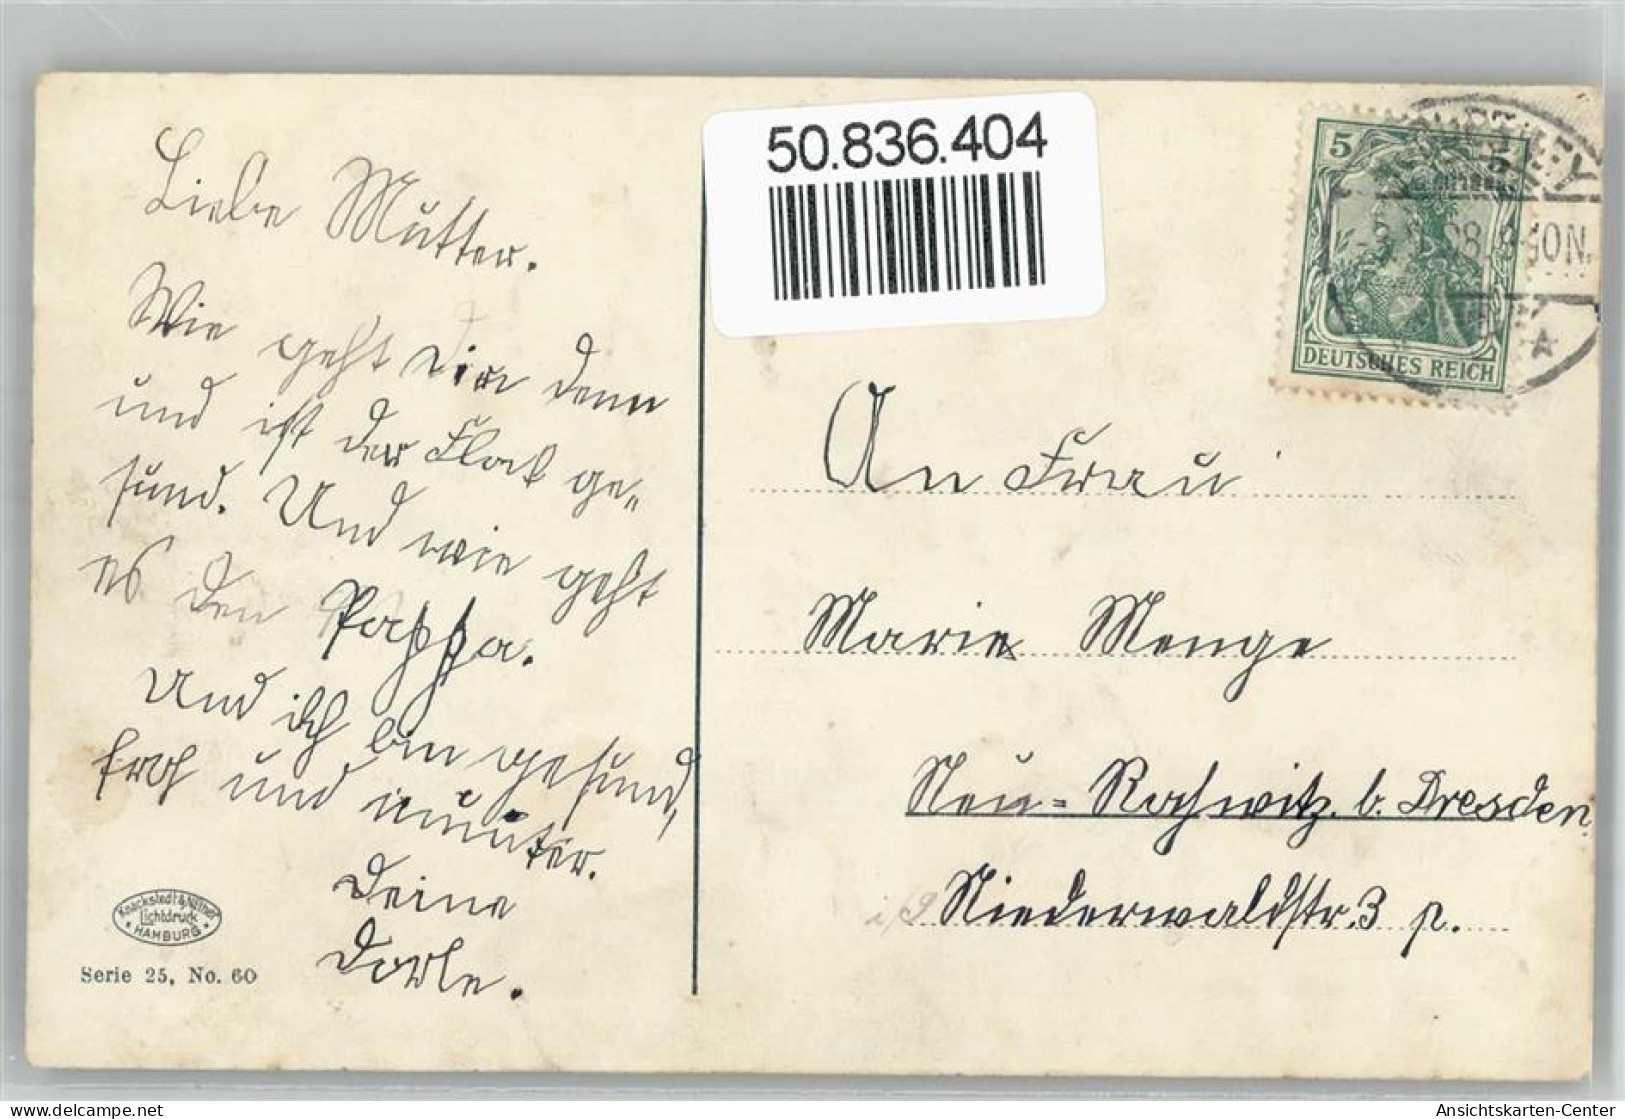 Liebe Mutter.
Wie geht Dir denn
und ist der Flock ge=
sund. Und wie geht
es den Pappa.
Und ich bin gesund,
froh und munter.
Deine
Dorle.
Knackstedt & Näther
Lichtdruck
HAMBURG
Serie 25, No. 60
50.836.404
5
DEUTSCHES REICH
An Frau
Marie Menge
Neu=Rochwitz. b. Dresden
Niederwaldstr. 3 p.
Ansichtskarten-Center